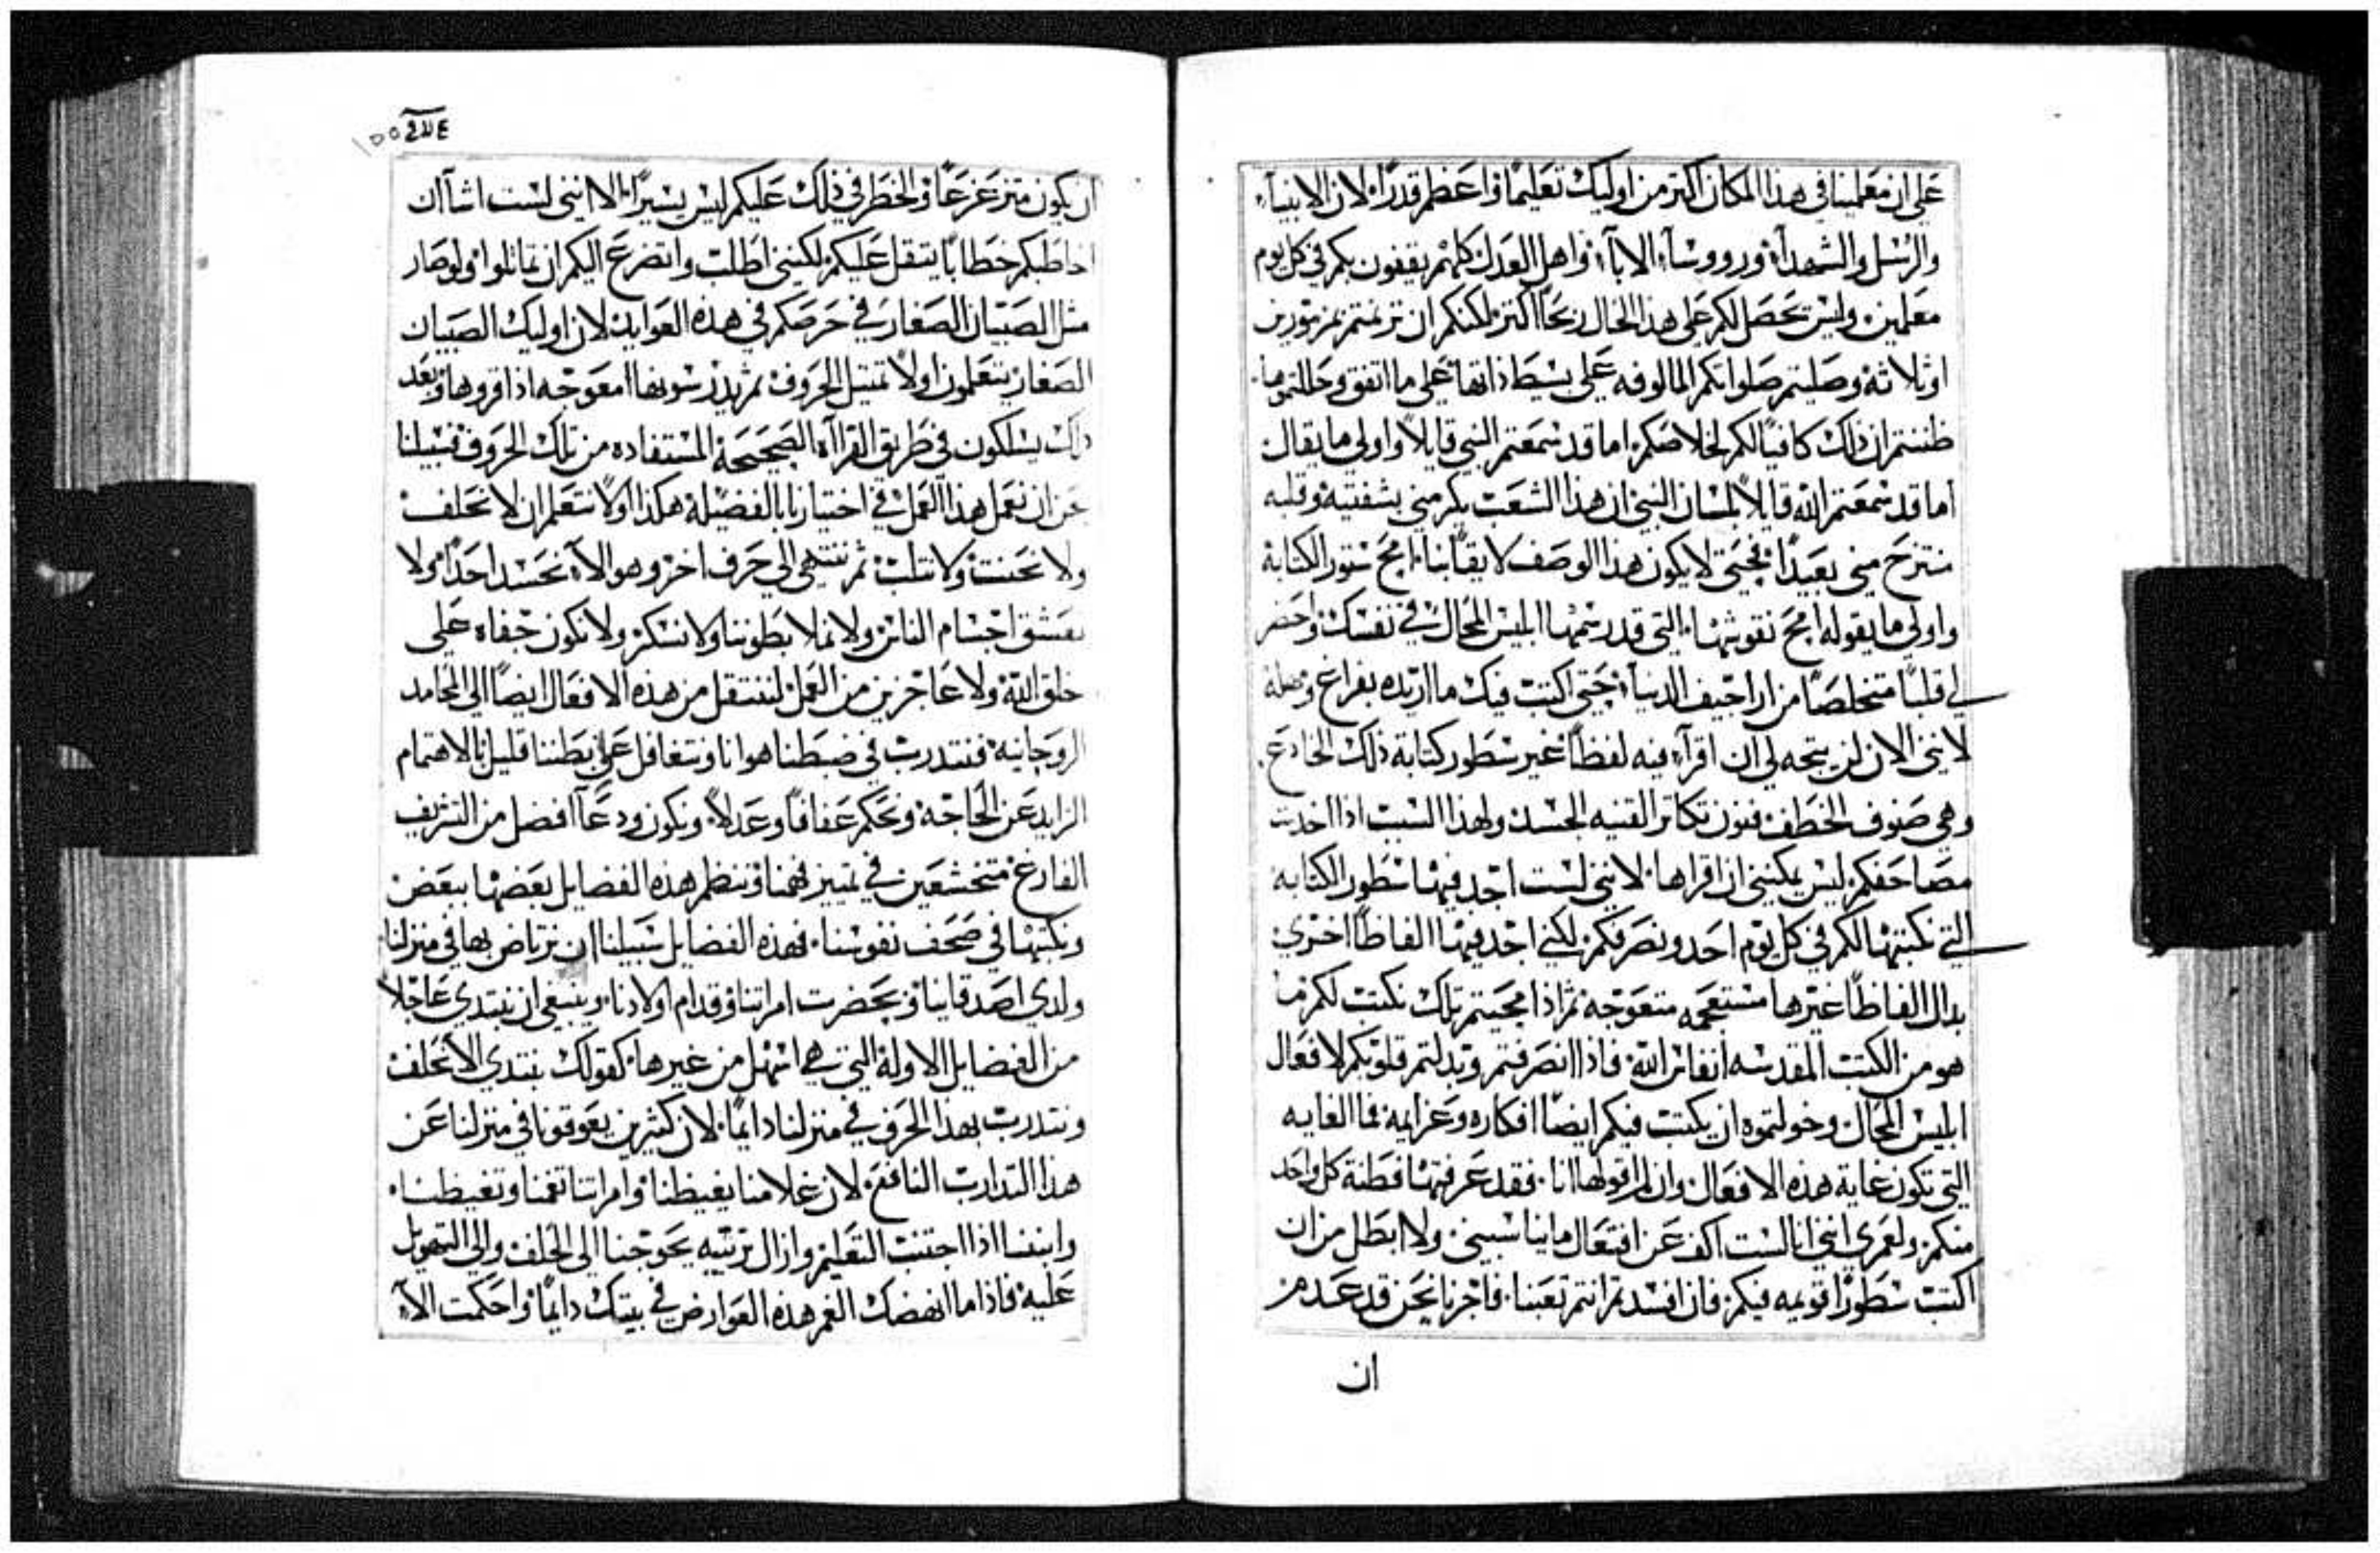 على ان معلمينا في هذا المكان اكتر من اوليك تعليمًا واعظم قدرًا، لان الانبياء
والرسل والشهدآء ورووسآء الابآء واهل العدل كلهم يقفون بكم في كل يوم
معلمين، وليس تحصل لكم على هذا الحال ربحًا اكتر، لكنكم ان ترنمتم بمزمورين
اوثلاثة وصليتم صلواتكم المالوفه على بسيط ذاتها على ما اتفق وحللتموها
ظننتم ان ذلك كافيًا لكم لخلاصكم، اما قد سمعتم النبي قايلاً واولى ما يقال
اما قد سمعتم الله قايلاً بلسان النبي ان هذا الشعب يكرمني بشفتيه وقلبه
منتزح مني بعيدًا، فحتى لا يكون هذا الوصف لايقًا بنا، امح ستور الكتابة
واولى ما يقوله امح نقوشها، التي قد رسمها ابليس المحال في نفسك، واحضر
لي قلبًا متخلصًا من اراجيف الدنيا، حتى اكتب فيك ما اريده بفراغ
لانني الان لن يتجه لي ان اقرآء فيه لفظًا غير سطور كتابة ذلك الخادع
وهي صنوف الخطف فنون تكاتر القنيه الحسد، ولهذا السبب اذا اخذت
مصاحفكم ليس يمكنني ان اقراها، لانني لست اجد فيها سطور الكتابه
التي نكتبها لكم في كل يوم احد ونصرفكم، لكني اجد فيها الفاظًا اخرى
بدال الفاظًا غيرها مستعجمه متعوجه، ثم اذا محيتم تلك نكتب لكم ما
هو من الكتب المقدسه انفاس الله، فاذا انصرفتم وبدلتم قلوبكم لافعال
ابليس المحال وخولتموه ان يكتب فيكم ايضًا افكاره وعزايمه فما الغايه
التي تكون غاية هذه الافعال، وان لم اقولها انا، فقد عرفتها فطنة كل واحد
منكم، ولعمري انني انا لست اكف عن افتعال ما يناسبني، ولا ابطل من ان
اكتب سطورًا قويمه فيكم، فان افسدتم انتم تعبنا، فاجرنا نحن قد عدم
ان
١٥٥
ان يكون متزعزعًا، والخطر في ذلك عليكم ليس يسيرًا، الا انني لست اشآ ان
اخاطبكم خطابًا يتقل عليكم، لكنني اطلب واتضرع اليكم ان تماثلوا، ولو صار
مثل الصبيان الصغار في حرصكم في هذه العوايد، لان اوليك الصبيان
الصغار يتعلمون اولاً تمتيل الحروف، ثم يدرسونها معوجه اذا قروها، وبعد
ذلك يسلكون في طريق القرااة الصحيحة المستفاده من تلك الحروف، فسبيلنا
نحن ان نعمل هذا العمل في اختيارنا بالفضيلة هكذا، اولاً نتعلم ان لا نحلف
ولا نحنت، ولا نتلب، ثم ننتهي الى حرف اخر، وهو الآ نحسد احدًا، ولا
نعشق اجسام الناس، ولا نملا بطوننا، ولا نسكر، ولا نكون جفاه على
خلق الله، ولا عاجزين من العمل، لننتقل من هذه الافعال ايضًا الى المحامد
الروحانيه، فنتدرب في ضبطنا هوانا، ونتغافل عن بطننا قليل بالاهتمام
الزايد عن الحاجة، ونحكم عفافًا وعدلاً، ونكون ودعآ افضل من التشريف
الفارغ، متخشعين في تمييز فهمنا، وننظم هذه الفضايل بعضها ببعض
ونكتبها في صحف نفوسنا، فهذه الفضايل سبيلنا ان نرتاض بها في منزلنا،
ولدي اصدقاينا، و بحضرت امراتنا، وقدام اولادنا، وينبغي ان نبتدي عاجلاً
من الفضايل الاولة التي هي اسهل من غيرها، كقولك نبتدي الا نحلف
ونتدرب بهذا الحرف في منزلنا دايمًا، لان كثيرين يعوقونا في منزلنا عن
هذا التدارب النافع، لان غلامنا يغيظنا، وامراتنا تغمنا وتغيظنا،
وابننا اذا اجتنب التعليم وازال ترتيبه يحوجنا الى الحلف، والى التهويل
عليه، فاذا ما انهضك الغم هذه العوارض في بيتك دايمًا، واحكمت الآ